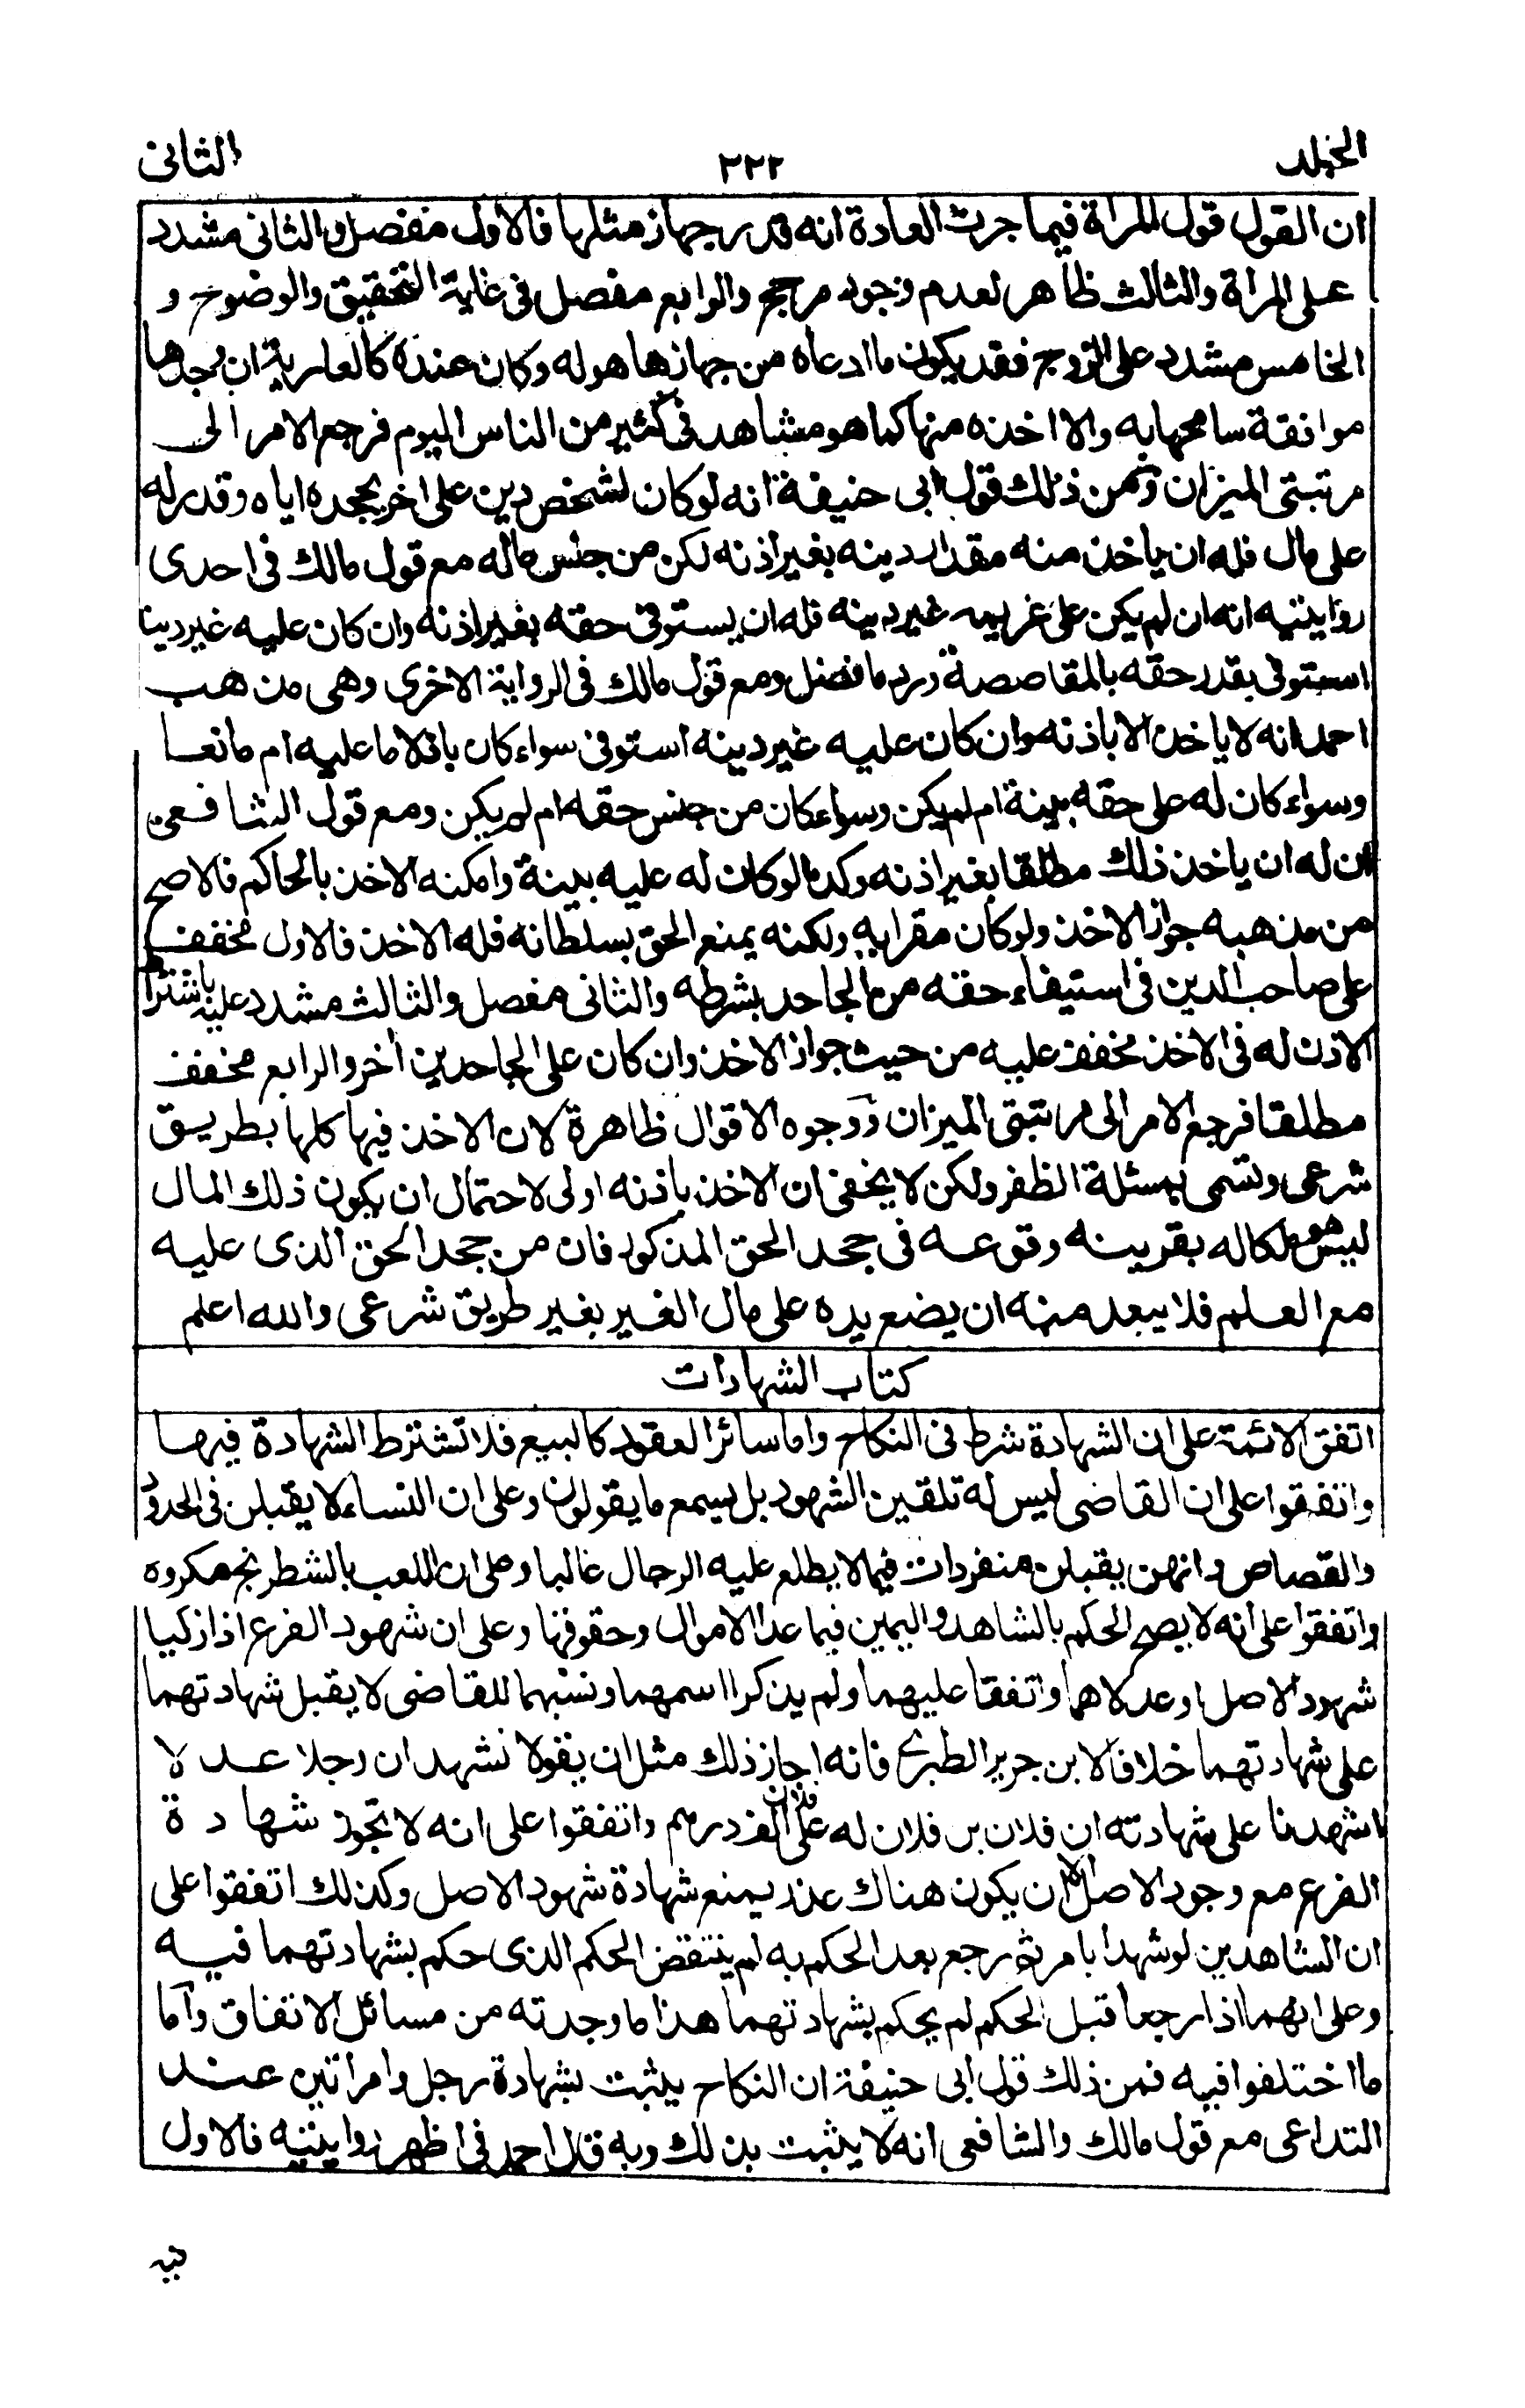 المجلد ٣٢٢ الثانى
ان القول قول المراة فيما جرت العادة انه قدر جهاز مثلها فالاول مفصل والثانى مشدد
على المراة والثالث ظاهر لعدم وجود مرجح والرابع مفصل فى غاية التحقيق والوضوح و
الخامس مشدد على الزوج فقد يكون ما ادعاه من جهازها هو له وكان عنده كالعارية ان وجدها
موافقة سامحها به والا اخذه منها كما هو مشاهد فى كثير من الناس اليوم فرجع الامر الى
مرتبتى الميزان ومن ذلك قول ابى حنيفة انه لو كان لشخص دين على اخر يجحده اياه وقدر له
على مال فله ان ياخذ منه مقدار دينه بغير اذنه لكن من جنس ماله مع قول مالك فى احدى
روايتيه انه ان لم يكن على غريمه غير دينه فله ان يستوفى حقه بغير اذنه وان كان عليه غير دينا
استوفى بقدر حقه بالمقاصصة ورد ما فضل ومع قول مالك فى الرواية الاخرى وهى مذهب
احمد انه لا ياخذ الا باذنه وان كان عليه غير دينه استوفى سواء كان باذلا ما عليه ام مانعا
وسواء كان له على حقه بينة ام لم يكن وسواء كان من جنس حقه ام لم يكن ومع قول الشافعى
ان له ان ياخذ ذلك مطلقا بغير اذنه وكذا لو كان له عليه بينة وامكنه الاخذ بالحاكم فالاصح
من مذهبه جواز الاخذ ولو كان مقرا به ولكنه يمنع الحق بسلطانه فله الاخذ فالاول مخفف
على صاحب الدين فى استيفاء حقه من الجاحد بشرطه والثانى مفصل والثالث مشدد عليه باشتراط
الاذن له فى الاخذ مخفف عليه من حيث جواز الاخذ وان كان على الجاحد دين آخر والرابع مخفف
مطلقا فرجع الامر الى مرتبتى الميزان ووجوه الاقوال ظاهرة لان الاخذ فيها كلها بطريق
شرعى وتسمى بمسئلة الظفر ولكن لا يخفى ان الاخذ باذنه اولى لاحتمال ان يكون ذلك المال
ليس هو ملكا له بقرينه وقوعه فى جحد الحق المذكور فان من جحد الحق الذى عليه
مع العلم فلا يبعد منه ان يضع يده على مال الغير بغير طريق شرعى والله اعلم
كتاب الشهادات
اتفق الائمة على ان الشهادة شرط فى النكاح واما سائر العقود كالبيع فلا تشترط الشهادة فيها
واتفقوا على ان القاضى ليس له تلقين الشهود بل يسمع ما يقولون وعلى ان النساء لا يقبلن فى الحدود
والقصاص وانهن يقبلن منفردات فيما لا يطلع عليه الرجال غالبا وعلى ان اللعب بالشطرنج مكروه
واتفقوا على انه لا يصح الحكم بالشاهد واليمين فيما عدا الاموال وحقوقها وعلى ان شهود الفرع اذا زكيا
شهود الاصل او عدلاهما واتفقا عليهما ولم يذكرا اسمهما ونسبهما للقاضى لا يقبل شهادتهما
على شهادتهما خلافا لابن جرير الطبرى فانه اجاز ذلك مثل ان يقولا نشهد ان رجلا عدلا
اشهدنا على شهادته ان فلان بن فلان له على فلان الف درهم واتفقوا على انه لا تجوز شهادة
الفرع مع وجود الاصل الا ان يكون هناك عذر يمنع شهادة شهود الاصل وكذلك اتفقوا على
ان الشاهدين لو شهدا بامر ثم رجع بعد الحكم به لم ينتقض الحكم الذى حكم بشهادتهما فيه
وعلى انهما اذا رجعا قبل الحكم لم يحكم بشهادتهما هذا ما وجدته من مسائل الاتفاق واما
ما اختلفوا فيه فمن ذلك قول ابى حنيفة ان النكاح يثبت بشهادة رجل وامراتين عند
التداعى مع قول مالك والشافعى انه لا يثبت بذلك وبه قال احمد فى اظهر روايتيه فالاول